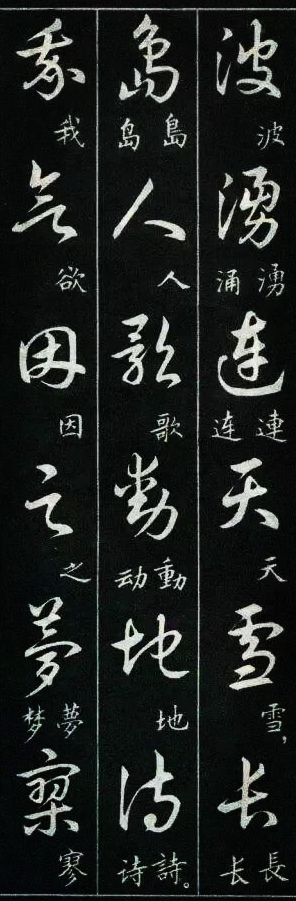 波 波 湧 湧 涌 连 連 连 天 天 雪 雪， 长 長 长
島 島 岛 人 人 歌 歌 動 動 动 地 地 诗 詩。 诗
我 我 欲 欲 因 因 之 之 夢 夢 梦 寥 寥